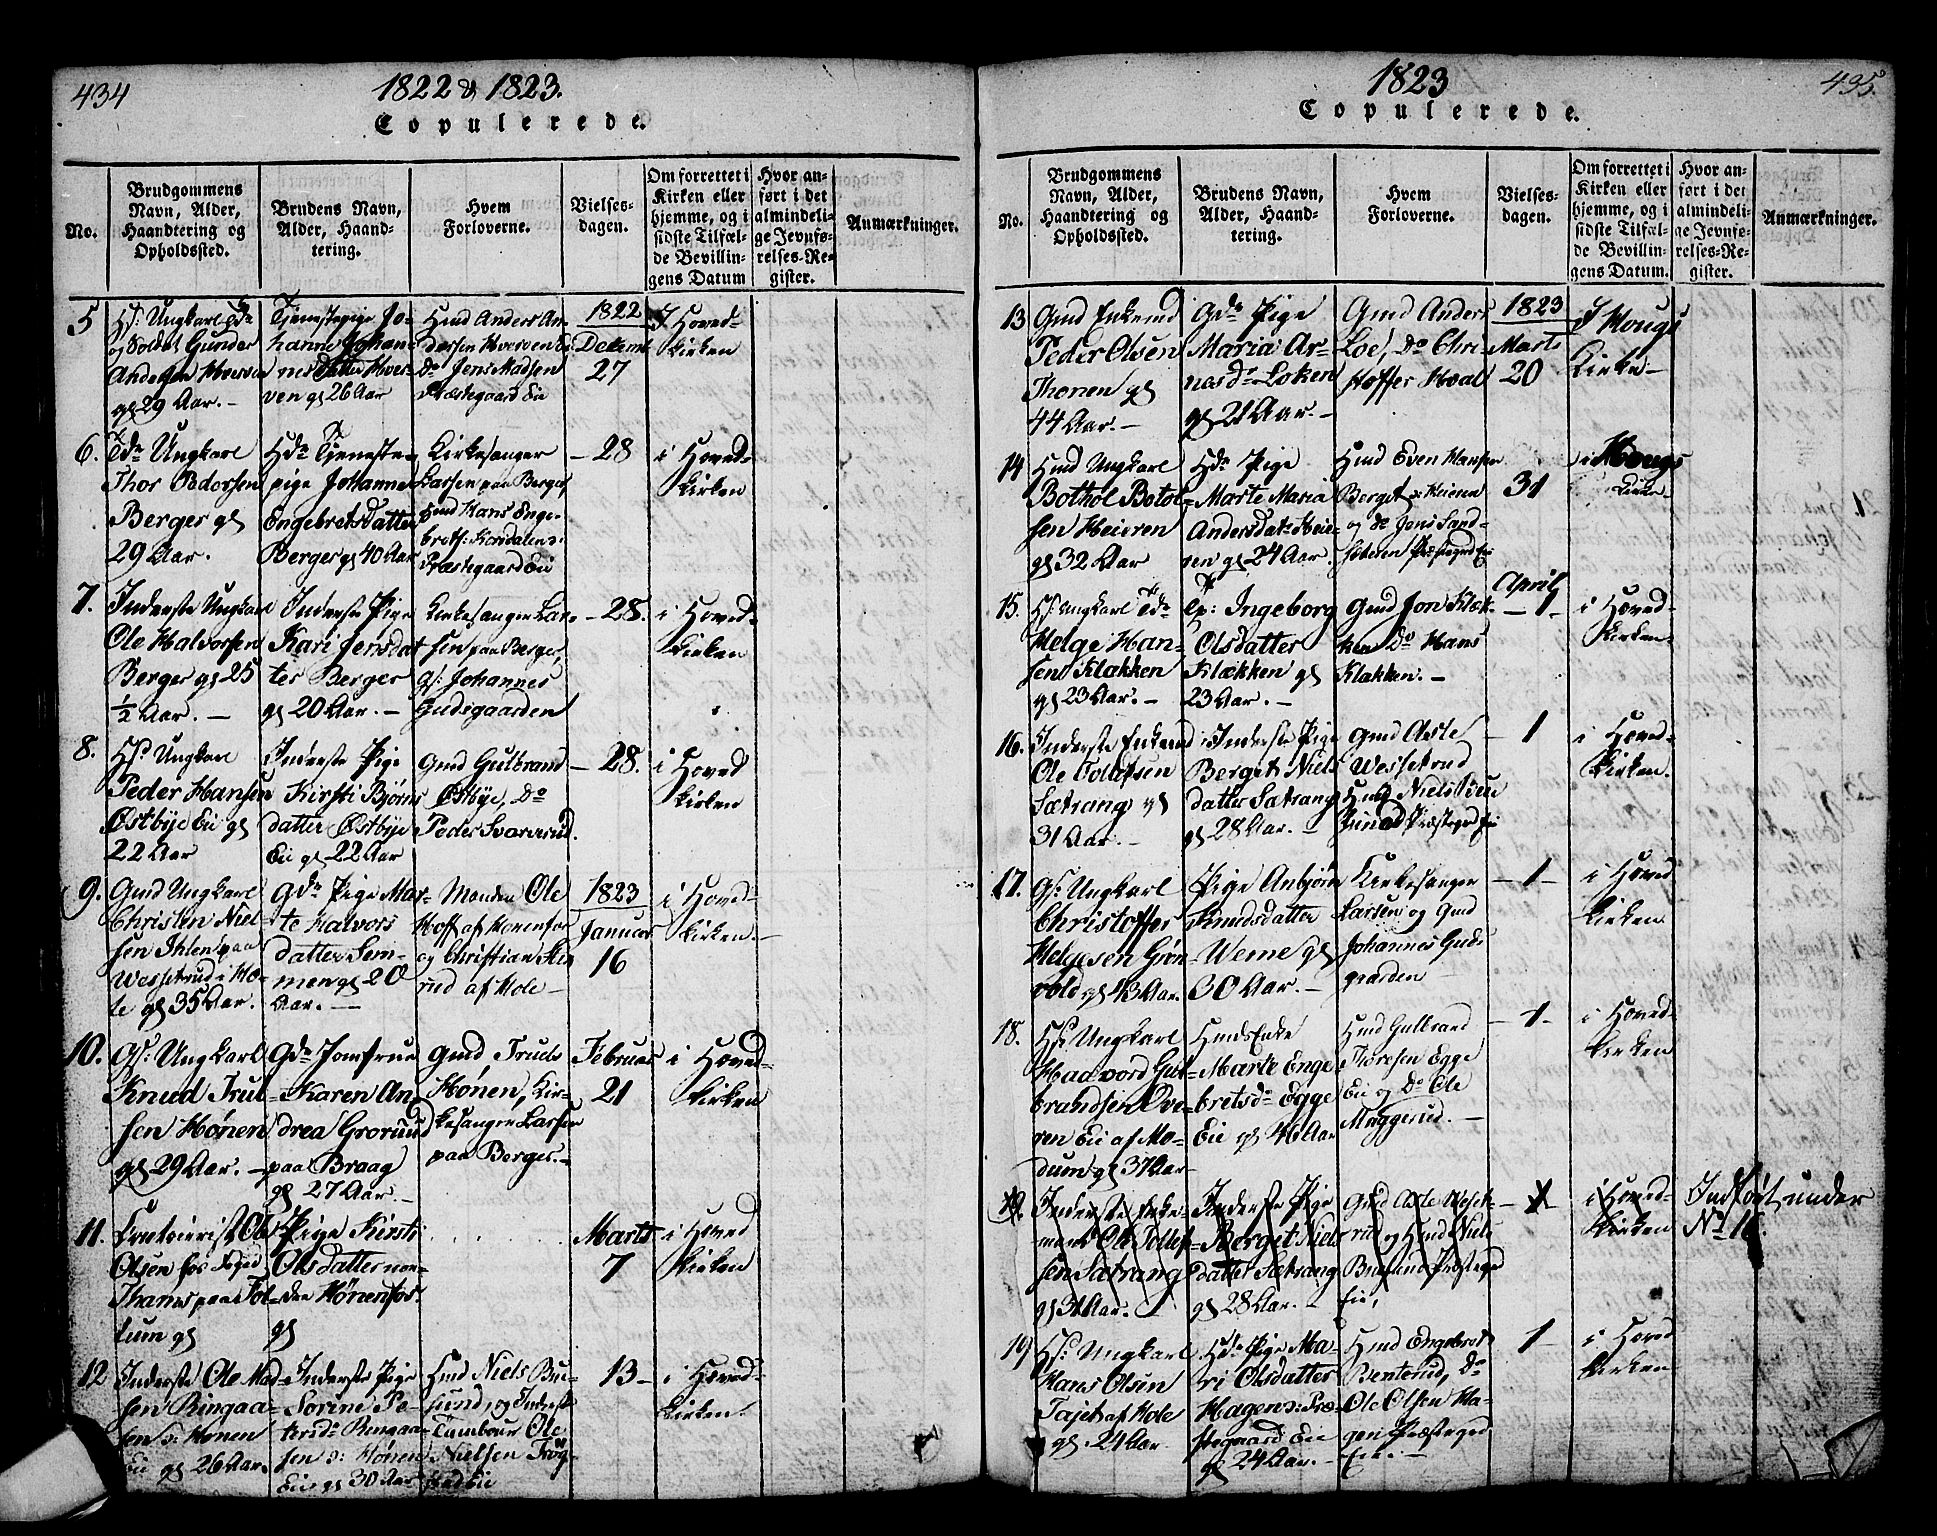 434
1822 & 1823.
Copulerede.
No.
Brudgommens
Navn, Alder,
Haandtering og
Opholdssted.
Brudens Navn,
Alder, Haand-
tering.
Hvem
Forloverne.
Vielses-
dagen.
Om forrettet i
Kirken eller
hjemme, og i
sidste Tilfæl-
de Bevillin-
gens Datum
Hvor an-
ført i det
almindeli-
ge Jevnfø-
relses-Re-
gister.
Anmærkninger.
5
Hs: Ungkarl
og Soldat Gunder
Andersen Hverven
gl 29 Aar. -
Tjenestepige Jo-
hanne Johan-
nes Datter Hver-
ven gl 26 Aar
Hmd Anders An-
dersen Hverven
Do Jens Madsen
Præstegaard Eie
1822
Decemb
27
I Hoved-
Kirken
6.
Tdr Ungkarl
Thor Pedersen
Berger gl
29 Aar.
Hdr Tjeneste-
pige Johanne
Engebretsdatter
Berger gl 40 Aar
Kirkesanger
Larsen paa Berger
Hmd Hans Enge-
Præstegaard Eie
- 28
i Hoved-
Kirken
7.
Inderste Ungkarl
Ole Halvorsen
Berger gl 25
1/2 Aar. -
Inderste Pige
Kari Jensdat
ter Berger
gl 20 Aar. -
Kirkesanger Lar-
sen paa Berger,
Gs: Johannes
Gudsgaarden
- 28.
i Hoved-
Kirken
8.
Hs: Ungkarl
Peder Hansen
Østbye Eie gl
22 Aar
Inderste Pige
Kirsti Bjørns
datter Østbye
Eie gl 22 Aar
Gmd Gulbrand
Østbye, Do
Peder Svarverud.
- 28.
i Hoved
Kirken
9.
Gmd Ungkarl
Christen Niel-
sen Ihlen paa
Wessetrud i Ho-
le gl 35 Aar.
Gdr Pige Mar-
te Halvors
datter Sem-
men gl 20
Aar. -
Manden Ole
Hoff af Hønenfos
og Christian
rud af Hole -
1823
Januar
16
i Hoved-
Kirken. -
10.
Gs: Ungkarl
Knud Trul-
sen Hønen
gl 29 Aar. -
Gdr Jomfrue
Karen An-
drea Grorud
paa Braag
gl 27 Aar. -
Gmd Truls
Hønen, Kir-
kesanger Larsen
paa Berger. -
Februar
21
i Hoved-
Kirken
11.
Ole
Olsen hos Foged
Thams paa Tol-
lum gl
Pige Kirsti
Olsdatter nor-
den Hønenfos.
gl
Marts
7
i Hoved
Kirken
12
Inderste Ole Mad-
sen Ringaa-
sen s: Hønen
Eie gl 26 Aar.
Inderste Pige
Sørine Pe-
dersdr Ringaa-
sen s: Hønen
Eie gl 30 Aar
Hmd Niels Bu-
sund, og Inderste
Tambour Ole
Nielsen
13 -
i Hoved-
Kirken.
435.
1823
Copulerede.
No.
Brudgommens
Navn, Alder,
Haandtering og
Opholdssted.
Brudens Navn,
Alder, Haand-
tering.
Hvem
Forloverne.
Vielses-
dagen.
Om forrettet i
Kirken eller
hjemme, og i
sidste Tilfæl-
de Bevillin-
gens Datum.
Hvor an-
ført i det
almindeli-
ge Jevnfø-
relses-Re-
gister.
Anmærkninger.
13
Gmd Enkemd
Peder Olsen
Thonen gl
44 Aar. -
Gdr Pige
Maria Ar-
nesdr Loken
gl 21 Aar. -
Gmd Anders
Loe, Do Chri-
stoffer Hval
1823
Marts
20
I Hougs
Kirke -
14
Hmd Ungkarl
Bothol Botol-
sen Heieren
gl 32 Aar
Hdr Pige
Marte Maria
Andersdatr Heie-
ren gl 24 Aar.
Hmd Even Hansen
Berget s: Heieren
og Do Jens Sand-
Præstegrd Eie
31
i Hougs
Kirke -
15.
Hs: Ungkarl
Helge Han-
sen Klækken
gl 23 Aar. -
Ep: Ingeborg
Olsdatter
Klækken gl
23 Aar. -
Gmd Jon Klæk-
ken Do Hans
Klækken. -
April
- 1 -
i Hoved-
Kirken -
16.
Inderste Enkemd
Ole Tollefsen
Sætrang gl
31 Aar. -
Inderste Pige
Berget Niels
datter Sætrang
gl 28 Aar. -
Gmd Asle
Wessetrud
Hmd Niels
Præstegrd Eie
- 1
i Hoved-
Kirken.
17.
Gs: Ungkarl
Christoffer
Helgesen Grøn-
vold gl 43 Aar.
Pige Anbjørn
Knudsdatter
Weme gl
30 Aar. -
Kirkesanger
Larsen og Gmd
Johannes Guds
gaarden -
- 1 -
i Hoved
Kirken
18.
Hs: Ungkarl
Haavord Gul-
brandsen Øve-
ren Eie af Mo-
dum gl 37 Aar
Hmds Enke
Marte Enge
bretsdr Egge
Eie gl 46 Aar
Hmd Gulbrand
Thoresen Egge
Eie og Do Ole
Maggerud. -
- 1 -
i Hoved-
Kirken
19.
Inderste Enke-
mand Ole Tollef-
sen Sætrang
gl 31 Aar.
Inderste Pige
Berget Niels
datter Sætrang
gl 28 Aar. -
Gmd Asle Wesset-
rud og Hmd Niels
Busund Præstegrd
Eie,
- 1
i Hoved-
Kirken
Indført under
No 16.
19
Hs: Ungkarl
Hans Olsen
Tajet af Hole
gl 24 Aar
Hdr Pige Ma-
ri Olsdatter
Hagen s: Præ-
stegaard Eie
gl 24 Aar. -
Hmd Engebret
Benterud, Do
Ole Olsen Ha-
gen Præstegrd
Eie. -
1
i Hoved
Kirken